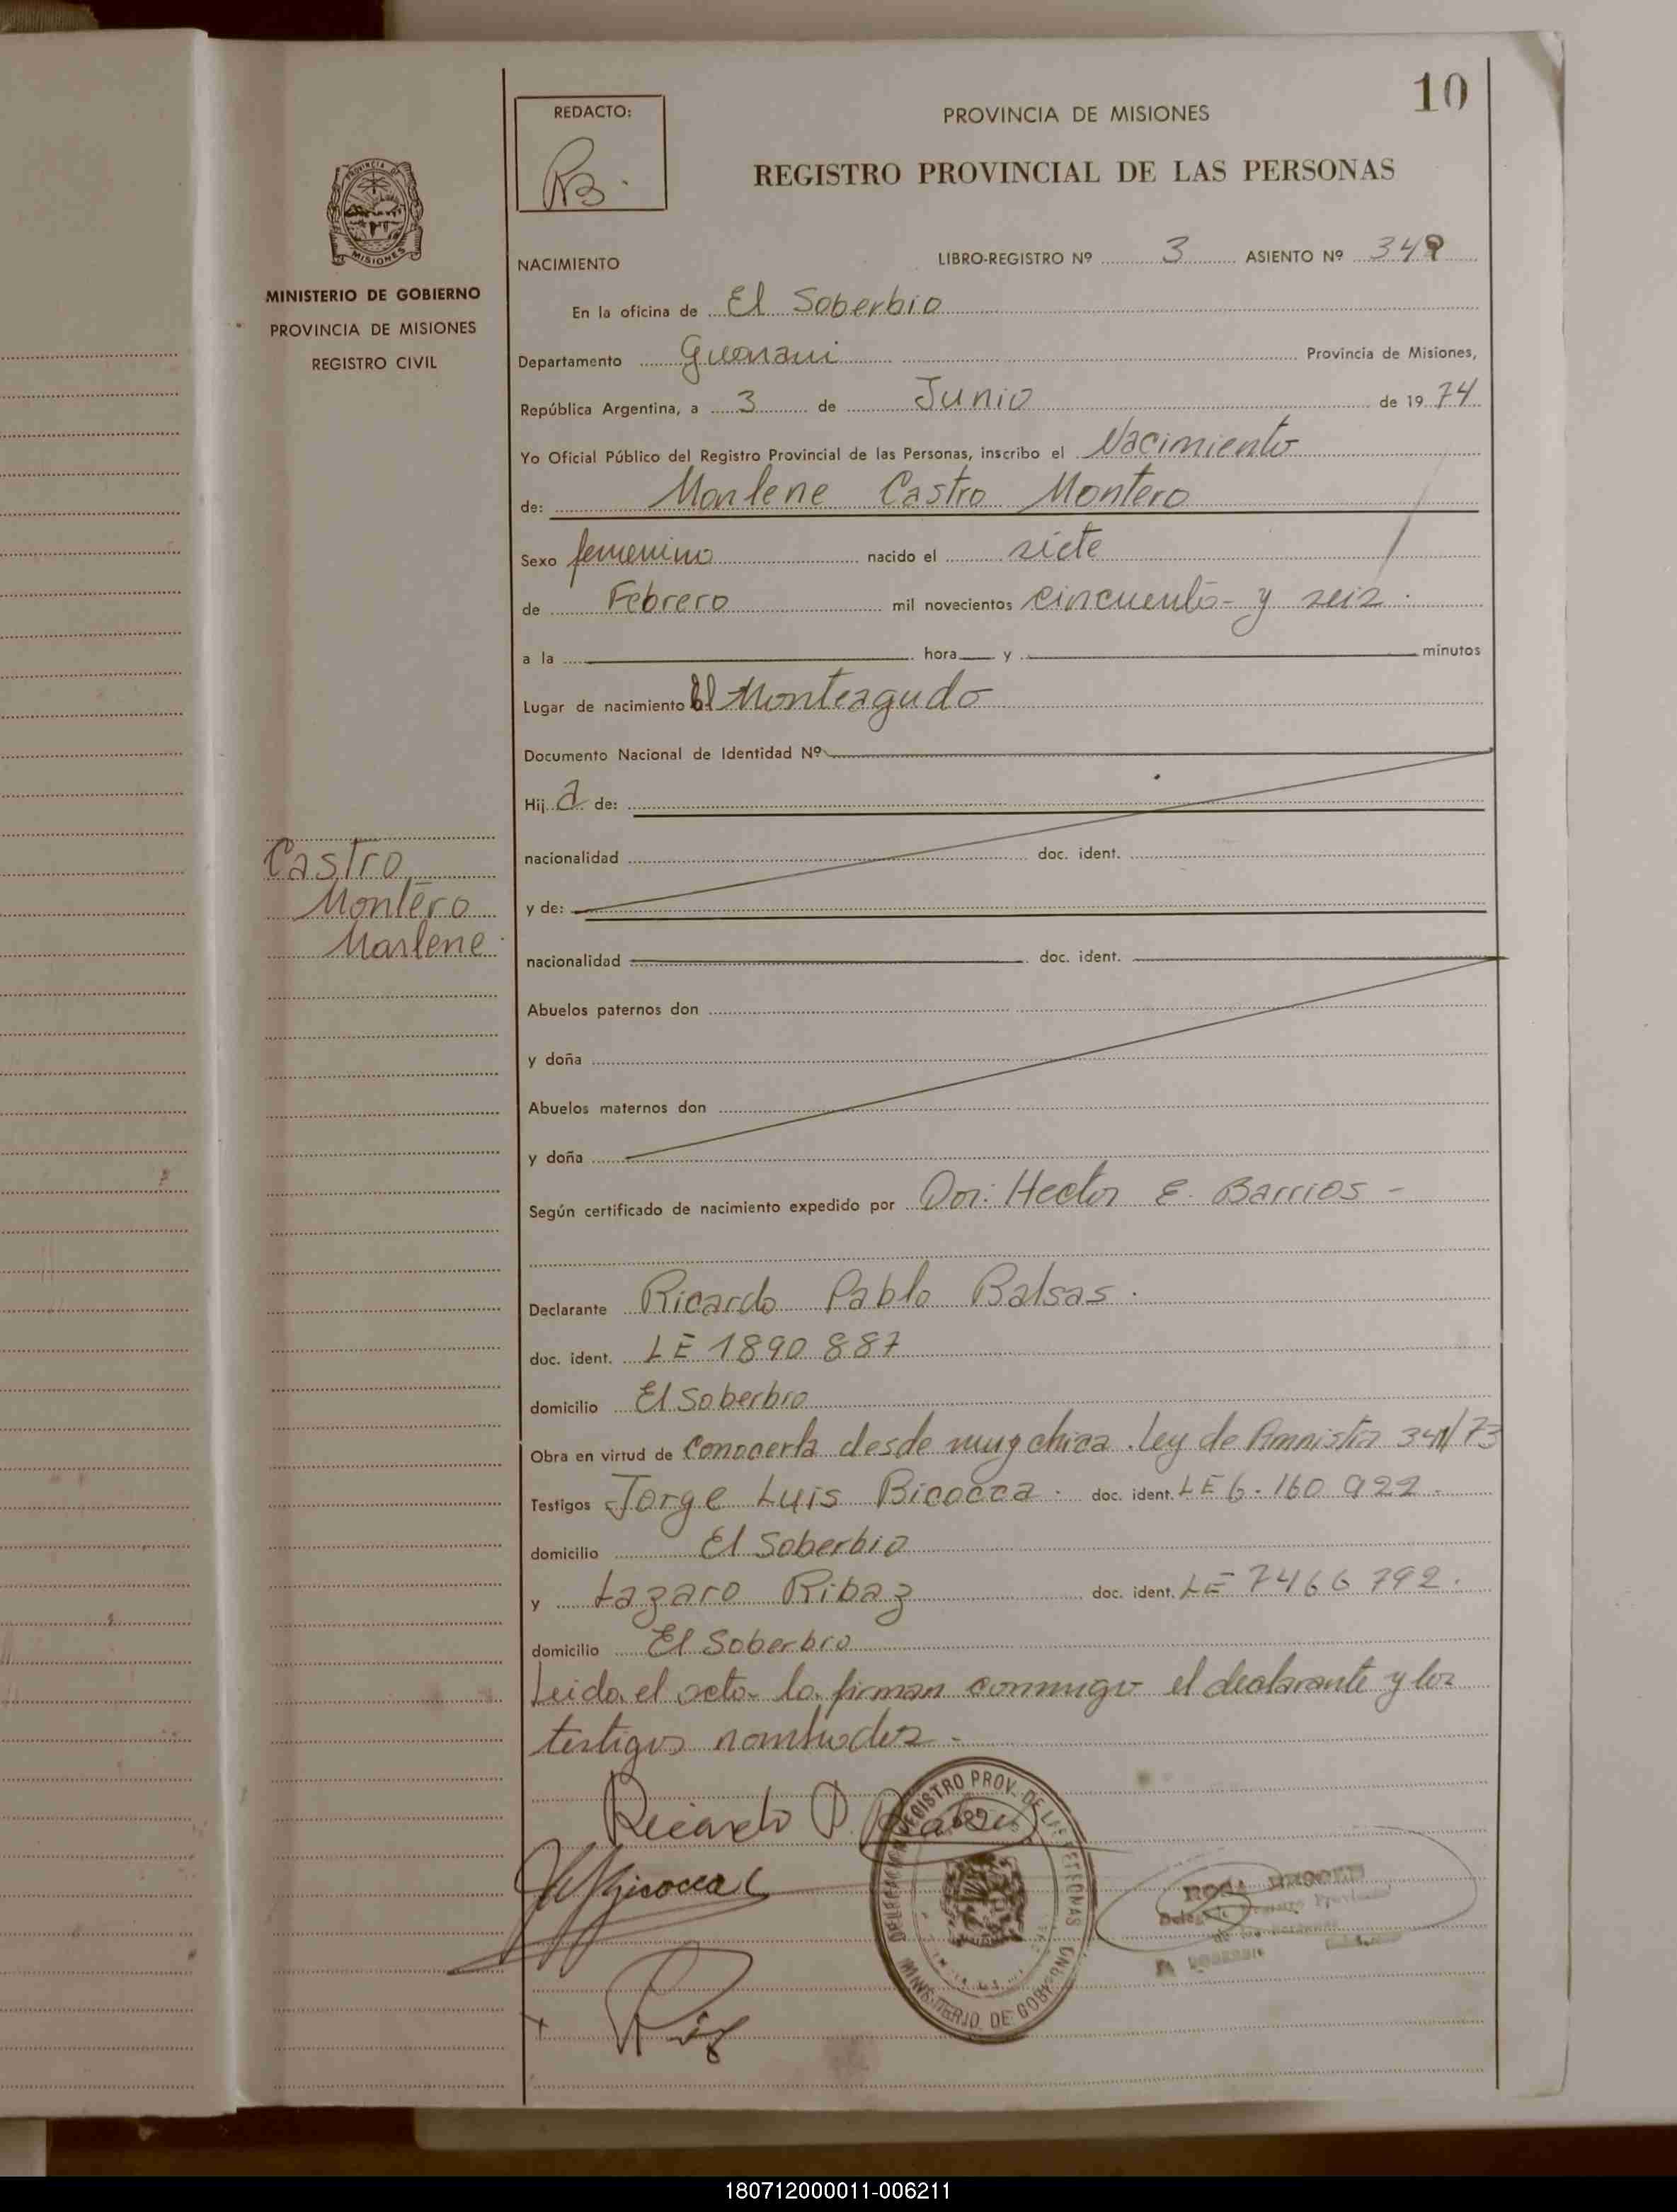 10
REDACTO:
PROVINCIA DE MISIONES
REGISTRO PROVINCIAL DE LAS PERSONAS
PROVINCIA DE
MISIONES
MINISTERIO DE GOBIERNO
PROVINCIA DE MISIONES
REGISTRO CIVIL
NACIMIENTO
LIBRO-REGISTRO Nº 3 ASIENTO Nº 349
En la oficina de El Soberbio
Departamento Guarani Provincia de Misiones,
República Argentina, a 3 de Junio de 1974
Yo Oficial Público del Registro Provincial de las Personas, inscribo el Nacimiento
de: Marlene Castro Montero
Sexo femenino nacido el siete
de Febrero mil novecientos cincuenta y seis.
a la hora y minutos
Lugar de nacimiento El Monteagudo
Documento Nacional de Identidad Nº
Hija de:
Castro
Montero
Marlene
nacionalidad doc. ident.
y de:
nacionalidad doc. ident.
Abuelos paternos don
y doña
Abuelos maternos don
y doña
Según certificado de nacimiento expedido por Dor: Hector E. Barrios -
Declarante Ricardo Pablo Balsas.
doc. ident. LE 1890 887
domicilio El Soberbio
Obra en virtud de Conocerla desde muy chica. Ley de Amnistia /73
Testigos Jorge Luis Bicocca. doc. ident. LE 6.160 922.
domicilio El Soberbio
y Lazaro Ribaz doc. ident. LE 7466 792.
domicilio El Soberbio
Leida el acta la firman conmigo el declarante y los
testigos nombrados.-
Ricardo P. Balsas
REGISTRO PROV. DE LAS PERSONAS
MINISTERIO DE GOBIERNO
180712000011-006211